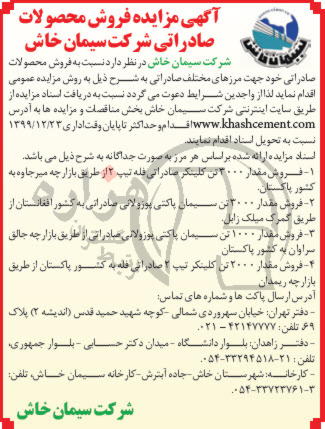 آگهی مزایده فروش محصولات
صادراتی شرکت سیمان خاش
شرکت سیمان خاش در نظر دارد نسبت به فروش محصولات
صادراتی خود جهت مرزهای مختلف صادراتی به شرح ذیل به روش مزایده عمومی
اقدام نماید لذا از واجدین شرایط دعوت می گردد نسبت به دریافت اسناد مزایده از
طریق سایت اینترنتی شرکت سیمان خاش بخش مناقصات و مزایده ها به آدرس
www.khashcement.com اقدام و حداکثر تا پایان وقت اداری ۱۳۹۹/۱۲/۲۳
نسبت به تحویل اسناد اقدام نمایند.
اسناد مزایده ارائه شده براساس هر مرز به صورت جداگانه به شرح ذیل می باشد.
۱- فروش مقدار ۳۰۰۰ تن کلینکر صادراتی فله تیپ ۲ از طریق بازارچه میرجاوه به
کشور پاکستان.
۲- فروش مقدار ۳۰۰۰ تن سیمان پاکتی پوزولانی صادراتی به کشور افغانستان از
طریق گمرک میلک زابل.
۳- فروش مقدار ۱۰۰۰ تن سیمان پاکتی پوزولانی صادراتی از طریق بازارچه جالق
سراوان به کشور پاکستان
۴- فروش مقدار ۲۰۰۰ تن کلینکر تیپ ۲ صادراتی فله به کشور پاکستان از طریق
بازارچه ریمدان
آدرس ارسال پاکت ها و شماره های تماس:
- دفتر تهران: خیابان سهروردی شمالی -کوچه شهید حمید قدس (اندیشه ۲) پلاک
۶۹ تلفن: ۴۲۱۴۷۷۷۷ - ۰۲۱
- دفتر زاهدان: بلوار دانشگاه - میدان دکتر حسابی - بلوار جمهوری،
تلفن : ۲۱-۳۳۲۹۴۵۱۸-۰۵۴
- کارخانه: شهرستان خاش-جاده آبترش-کارخانه سیمان خاش، تلفن:
۳-۳۳۷۲۳۷۶۱-۰۵۴
شرکت سیمان خاش